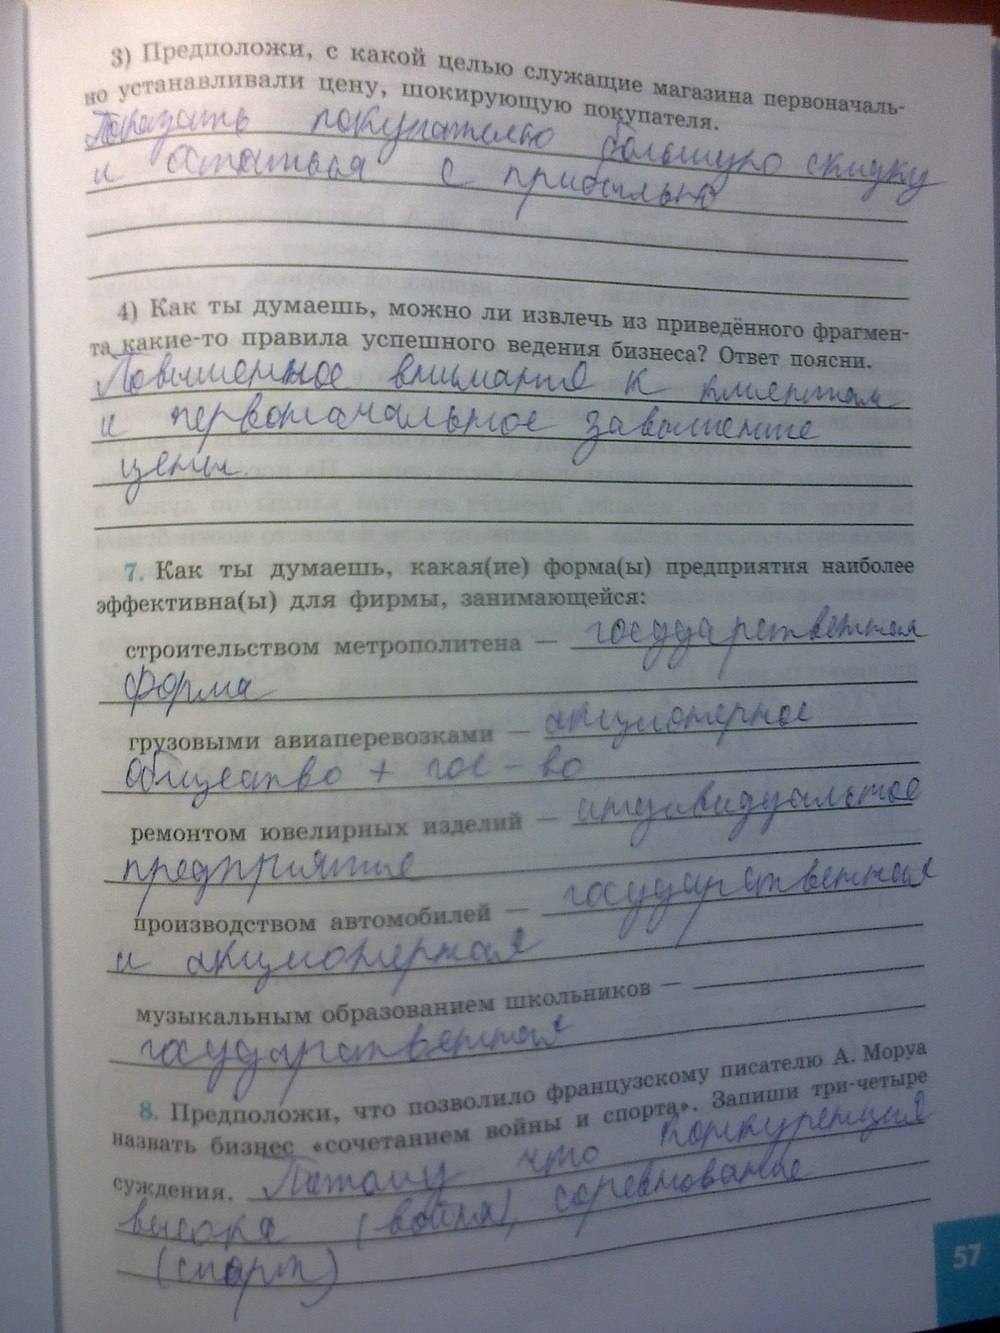 3) Предположи, с какой целью служащие магазина первоначаль-
но устанавливали цену, шокирующую покупателя.
Показать покупателю большую скидку
и остаться с прибылью
4) Как ты думаешь, можно ли извлечь из приведённого фрагмен-
та какие-то правила успешного ведения бизнеса? Ответ поясни.
Повышенное внимание к клиентам
и первоначальное завышение
цены.
7. Как ты думаешь, какая(ие) форма(ы) предприятия наиболее
эффективна(ы) для фирмы, занимающейся:
строительством метрополитена — государственная
форма
грузовыми авиаперевозками — акционерное
общество + гос-во
ремонтом ювелирных изделий — индивидуальное
предприятие
производством автомобилей — государственная
и акционерная
музыкальным образованием школьников —
государственная
8. Предположи, что позволило французскому писателю А. Моруа
назвать бизнес «сочетанием войны и спорта». Запиши три-четыре
суждения. Потому что конкуренция
высока (война), соревнование
(спорт)
57